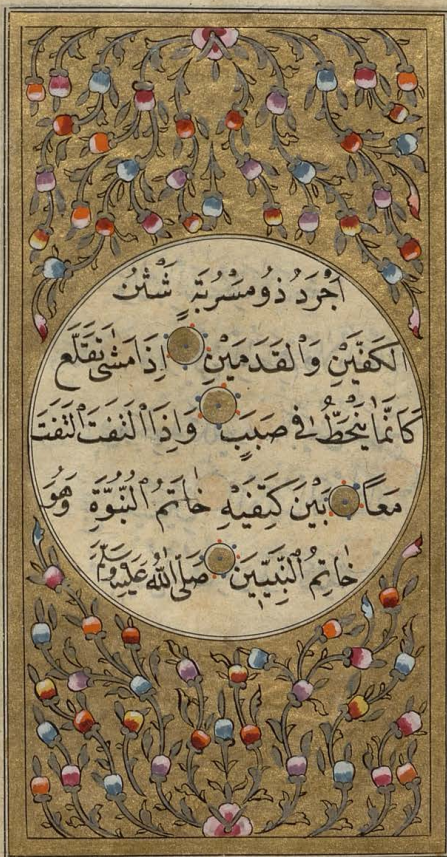 اَجْرَدُ ذُو مَسْرُبَةٍ شَثْنُ
الْكَفَّيْنِ وَالْقَدَمَيْنِ اِذَا مَشٰى تَقَلَّعَ
كَاَنَّمَا يَنْحَطُّ فِى صَبَبٍ وَاِذَا الْتَفَتَ الْتَفَتَ
مَعًا بَيْنَ كَتِفَيْهِ خَاتَمُ النُّبُوَّةِ وَهُوَ
خَاتِمُ النَّبِيّيٖنَ صَلَّى اللّٰهُ عَلَيْهِ وَسَلَّمَ